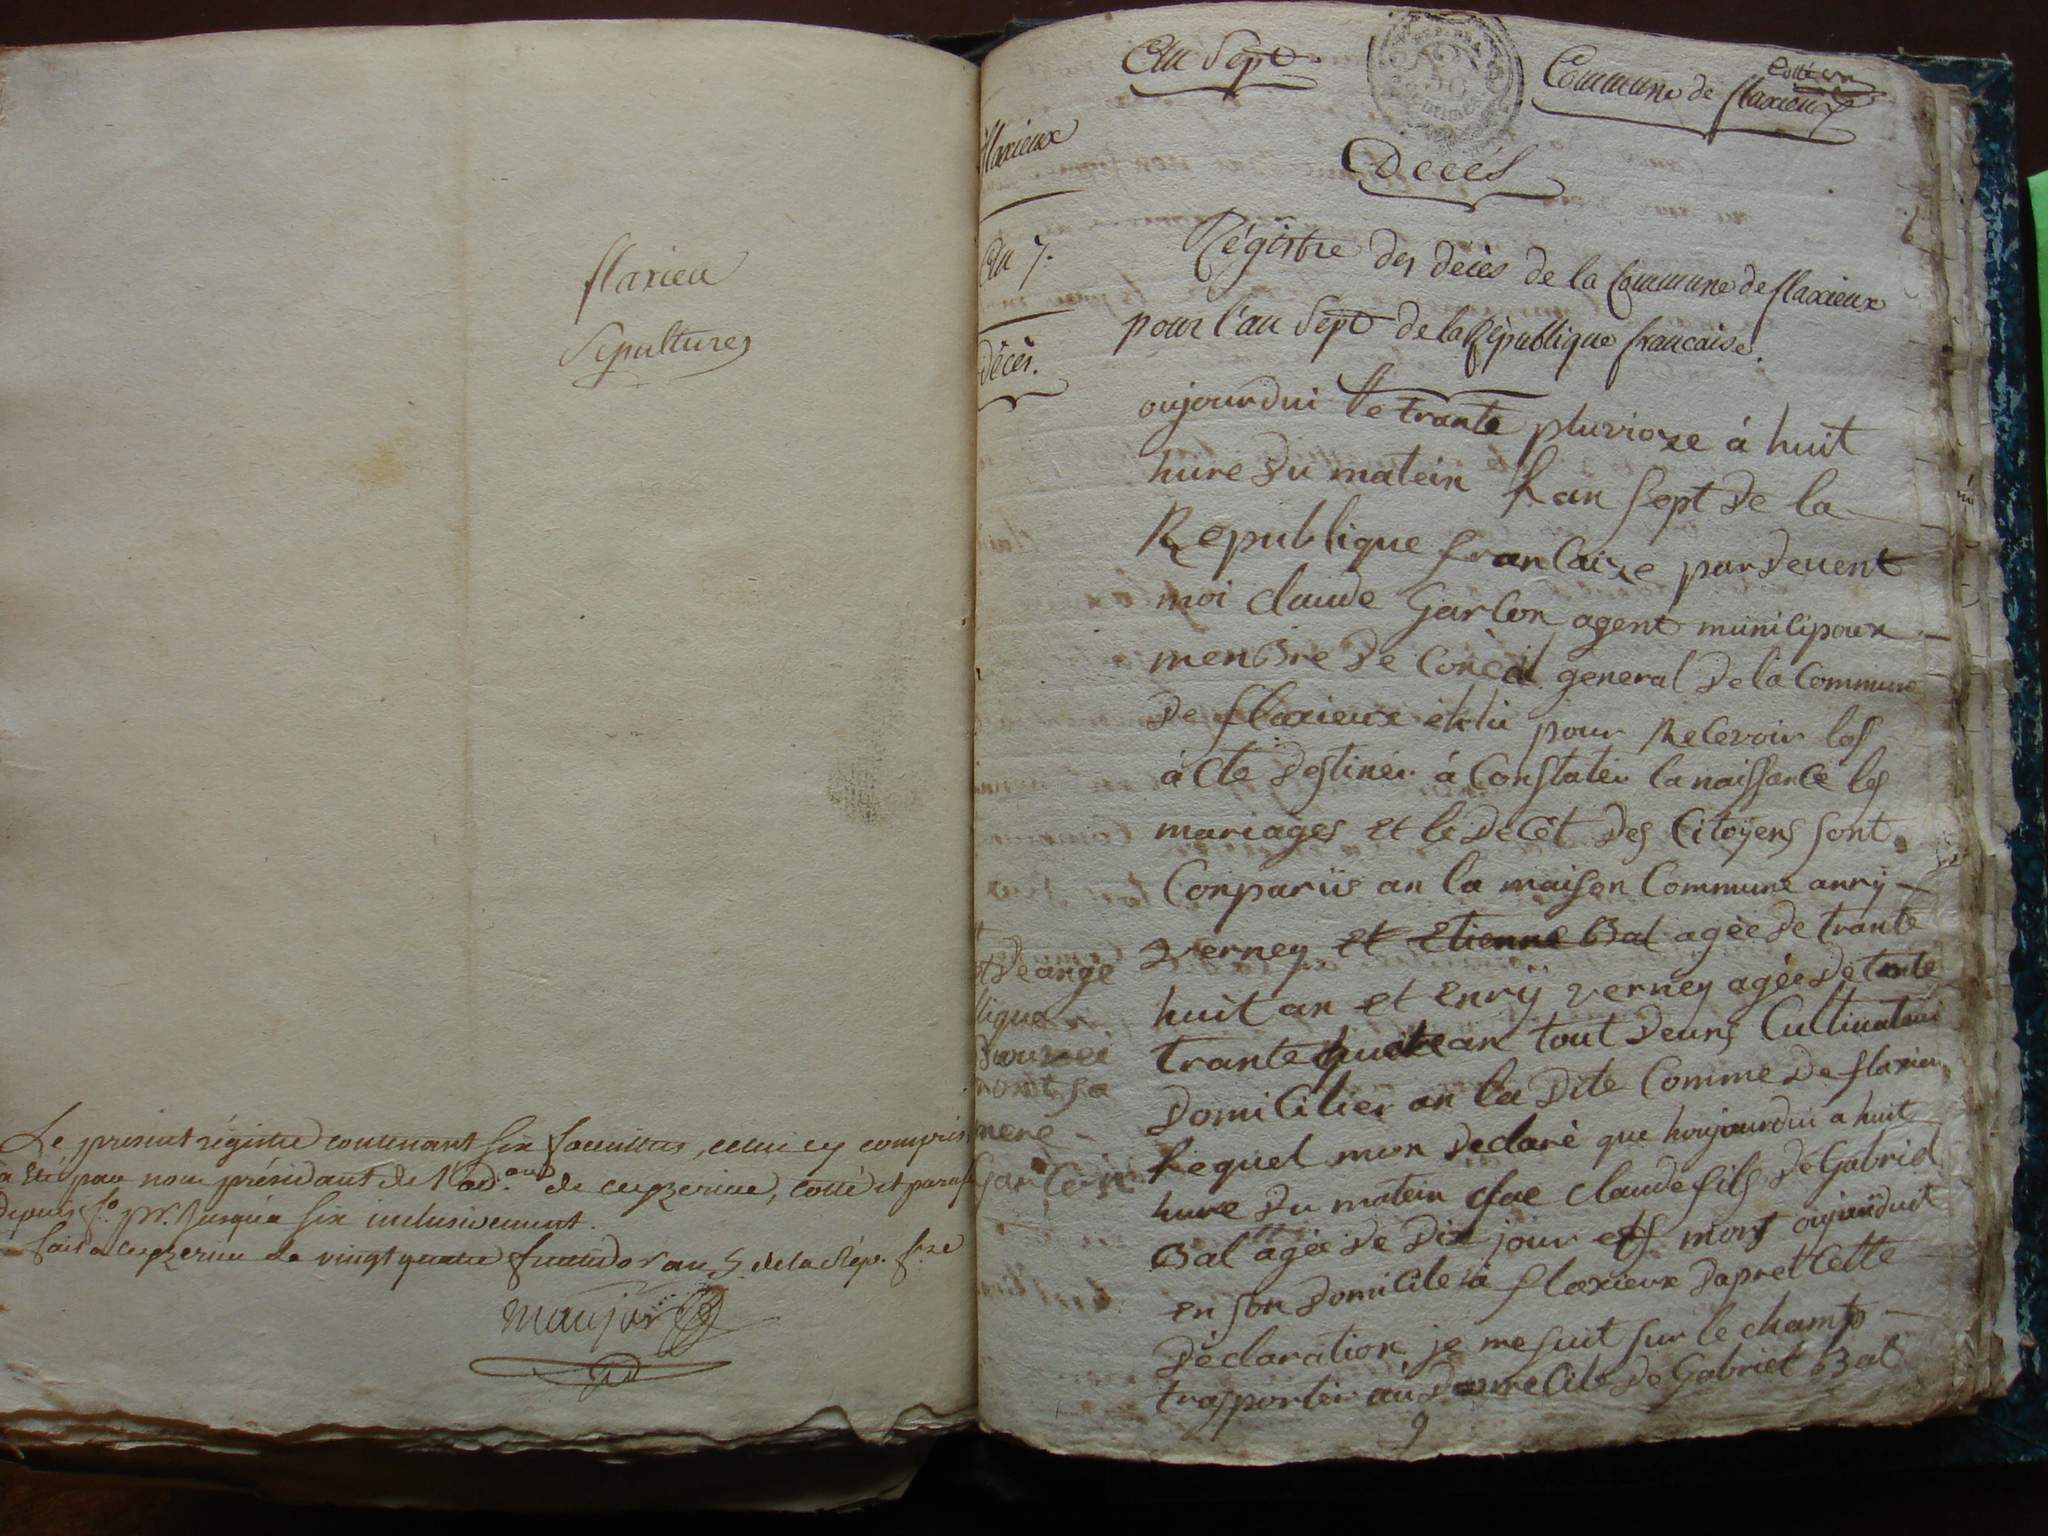 flaxieu
Sepultures
Le present régistre contenant six feuillets, celui cy compris
a été par nous présidant de l'ad.on de ceyzerieu, cotté et parafé
depuis f.o pr. jusqu'a six inclusivement.
fait a ceyzerieu le vingt quatre fructidor an de la Rép. f.ze
maujot
flaxieux
An 7.
Décès.
de ange
lique
mere
An Sept
Commune de flaxieux
Cotté un
Decés
Régistre des décès de la Commune de flaxieux
pour l'an Sept de la République francaise.
oujourdui le trante pluvioze á huit
hure du matein l an sept de la
Republique francaize par devent
moi claude Garcon agent municipoux
menbre de Conceil general de la Commune
de flaxieux élu pour Recevoir les
á cte destinér á Constatér la naissance les
mariages et le décét des Citoÿens sont
Conparüs an la maison Commune anrÿ
verney et Etienne Bal agée de trante
huit an et enrÿ verney agée de trante
trante huite an tout deuns Cultivateur
domicilier an la dite Comme de flaxieu
lequel mon declaré que houjourdui a huit
hure du matein que claude fils de Gabriel
Bal agée de dix jour est mort oujourduit
en son domicile á flaxieux daprest Cette
déclaration je me suit sur le champs
trasporter au domelcile de Gabriel Bal